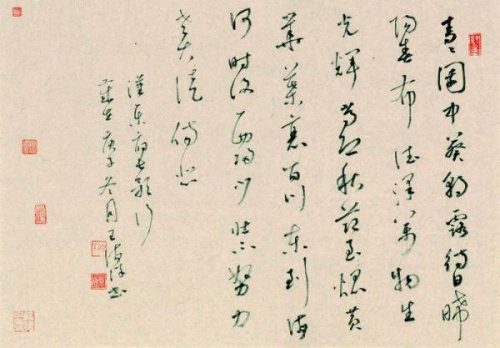 青〻園中葵朝露待日晞
陽春布德澤萬物生
光輝常恐秋節至焜黃
華葉衰百川東到海
何時復西歸少壯不努力
老大徒傷悲
漢樂府長歌行
歲在庚子冬月王書